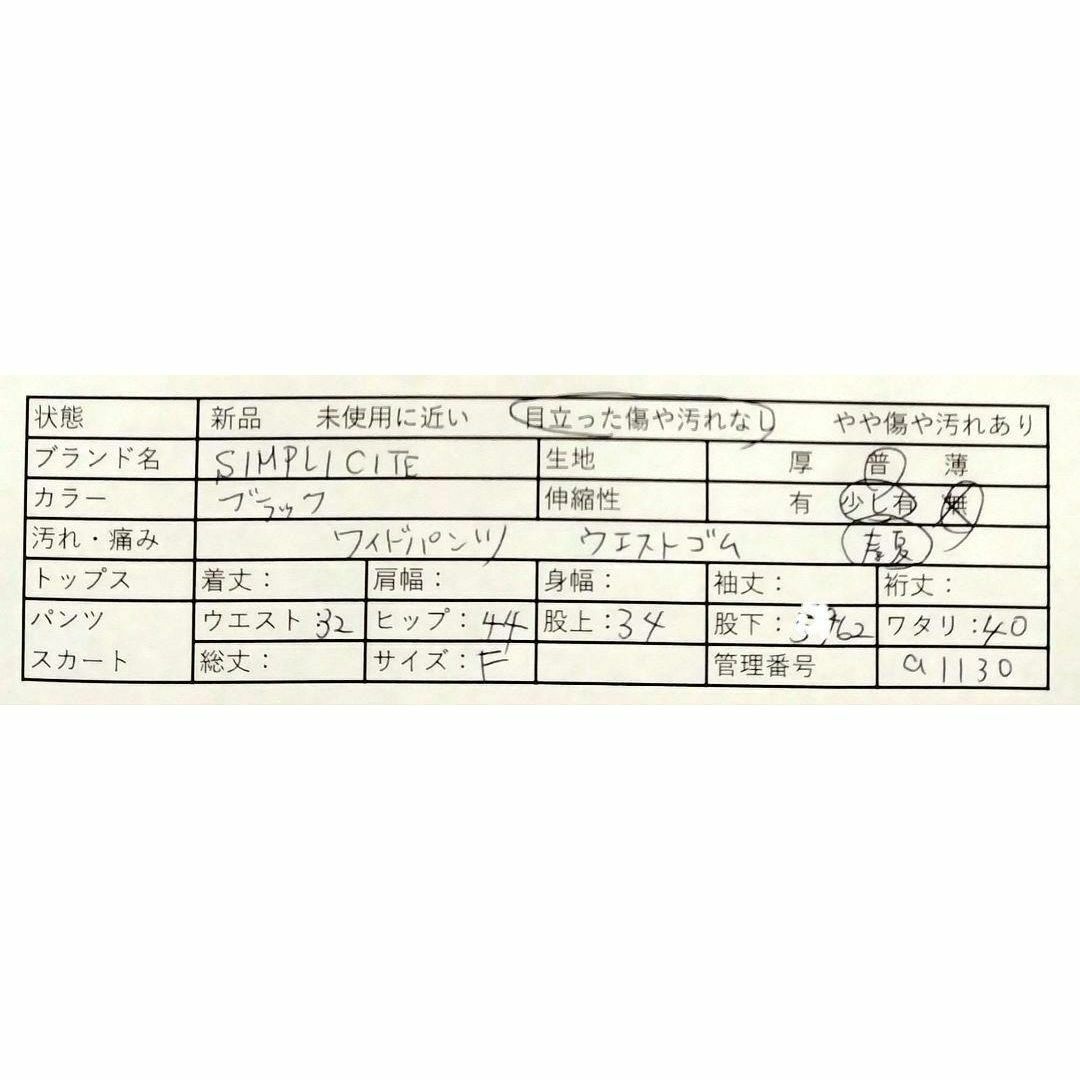 状態 新品 未使用に近い 目立った傷や汚れなし やや傷や汚れあり
ブランド名 SIMPLICITE 生地 厚 普 薄
カラー ブラック 伸縮性 有 少し有 無
汚れ・痛み ワイドパンツ ウエストゴム 春夏
トップス 着丈： 肩幅： 身幅： 袖丈： 裄丈：
パンツ ウエスト：32 ヒップ：44 股上：34 股下：62 ワタリ：40
スカート 総丈： サイズ：F 管理番号 a1130